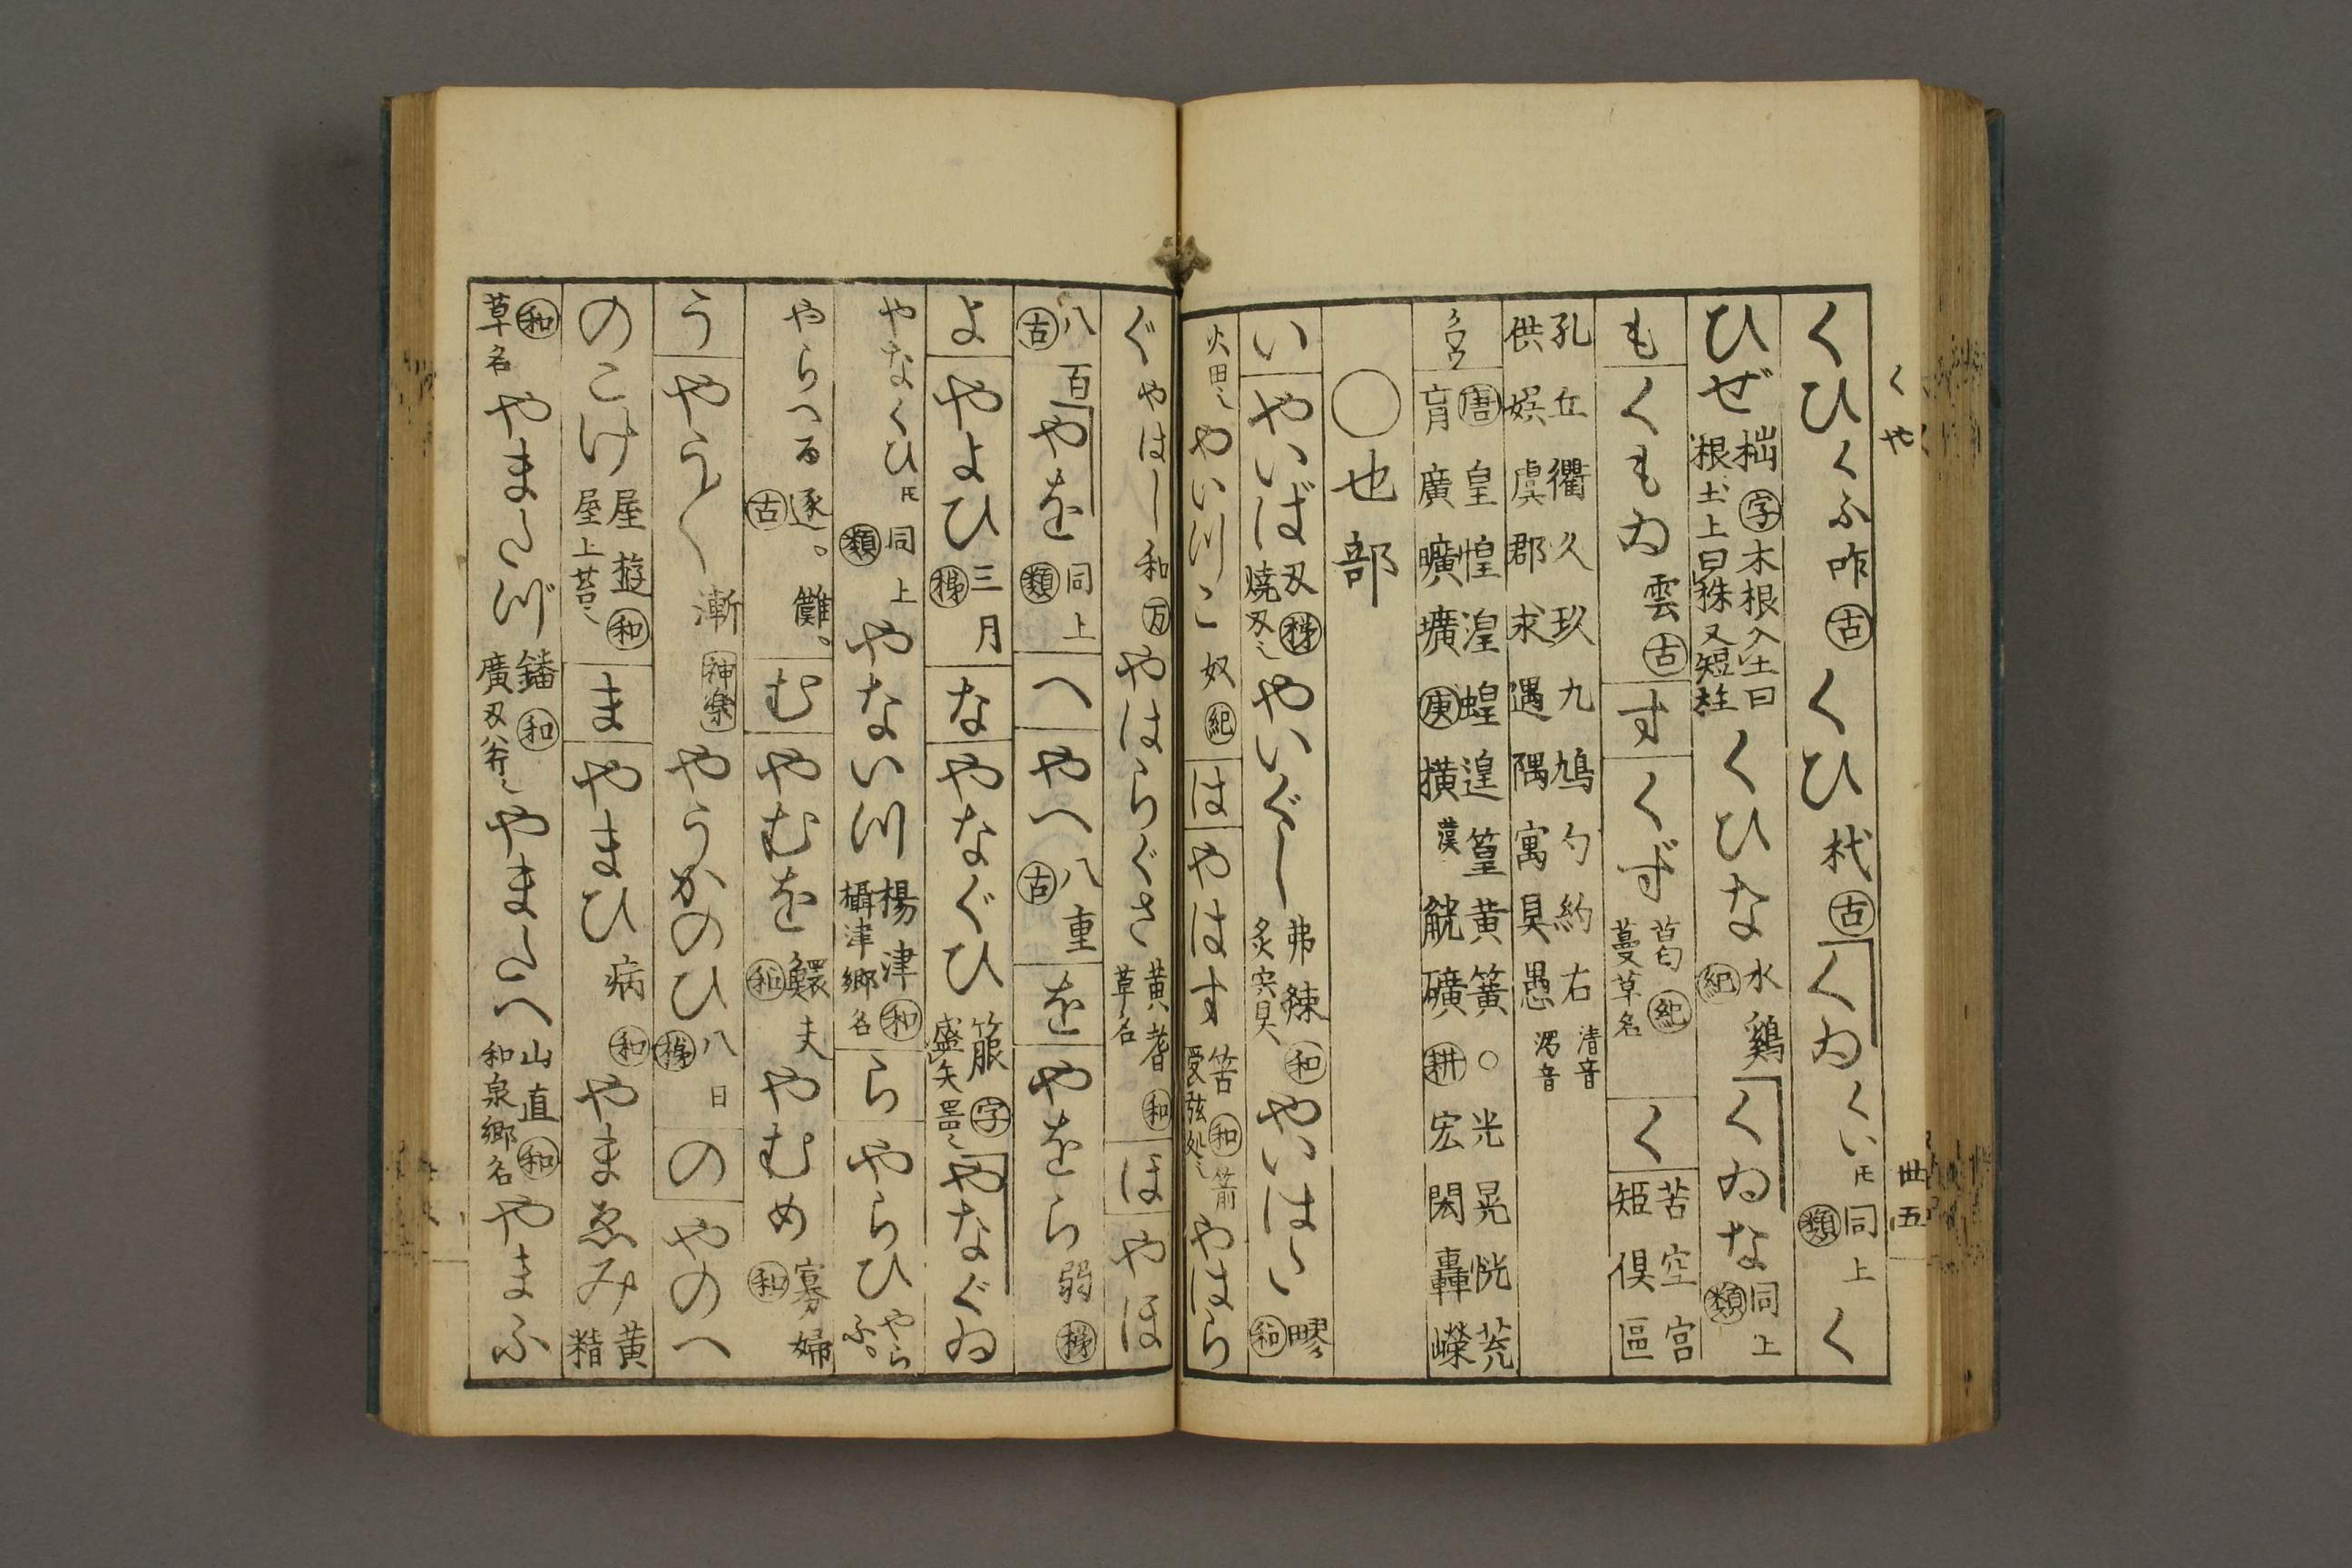 くや
卅五
くひくふ咋古くひ杙古くゐくい氏同上類く
ひぜ㭰字木根入土曰根土上曰株又短柱くひな水鶏紀くゐな同上類
もくもゐ雲古すくず葛紀蔓草名く苦空宮矩倶區
孔丘衢久玖九鳩勺約右清音供娯虞郡求遇隅寓具愚濁音
クワウ唐皇惶湟蝗遑篁黄簧○光晃恍荒肓廣曠壙庚横漢觥礦耕宏閎轟嶸
○也部
いやいば刃梯燒刃也やいぐし弗𨧱和炙突具やいはた畭和
火田也やい川こ奴紀はやはす筈和箭受弦処也やはら
ぐやはし和万やはらぐさ黄耆和草名ほやほ
八百古やを同上類へやへ八重古をやをら弱梯
よやよひ三月梯なやなぐひ箙字盛矢器也やなぐゐ
やなくひ氏同上類やない川楊津和攝津郷名らやらひやらふ。
やらへる逐。儺。古むやむを鰥夫和やむめ寡婦和
うやう〱漸神楽やうかのひ八日梯のやのへ
のこけ屋遊和屋上苔也まやまひ病和やまゑみ黄精
和草名やまたづ鐇和廣刃斧也やまたへ山直和和泉郷名やまふ